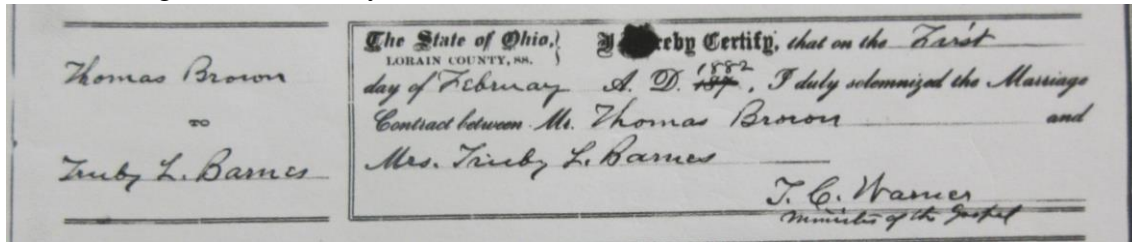 Thomas Brown
TO
Truby L. Barnes
The State of Ohio,
LORAIN COUNTY, SS.
I Hereby Certify, that on the First
day of February A. D. 187 1882, I duly solemnized the Marriage
Contract between Mr. Thomas Brown and
Mrs. Truby L. Barnes
T. C. Warner
Minister of the Gospel